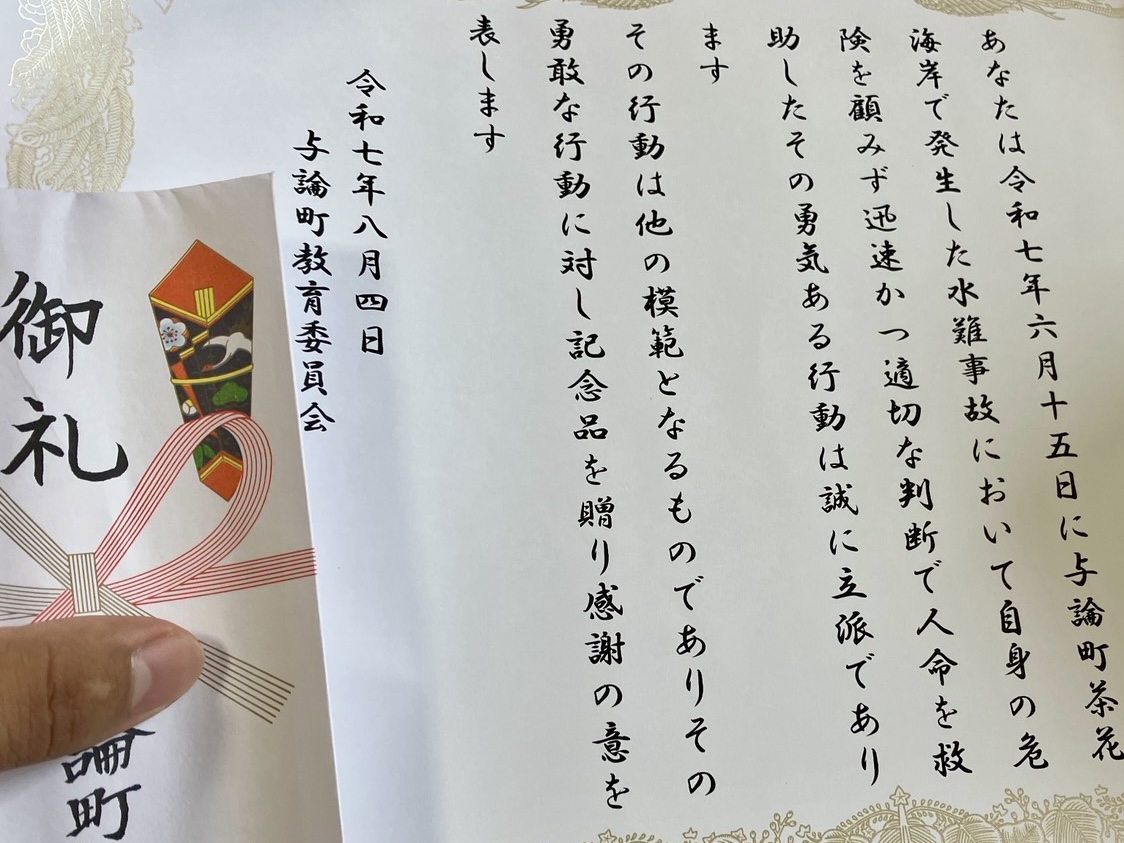 あなたは令和七年六月十五日に与論町茶花
海岸で発生した水難事故において自身の危
険を顧みず迅速かつ適切な判断で人命を救
助したその勇気ある行動は誠に立派であり
ます
その行動は他の模範となるものでありその
勇敢な行動に対し記念品を贈り感謝の意を
表します
令和七年八月四日
与論町教育委員会
御礼
論町